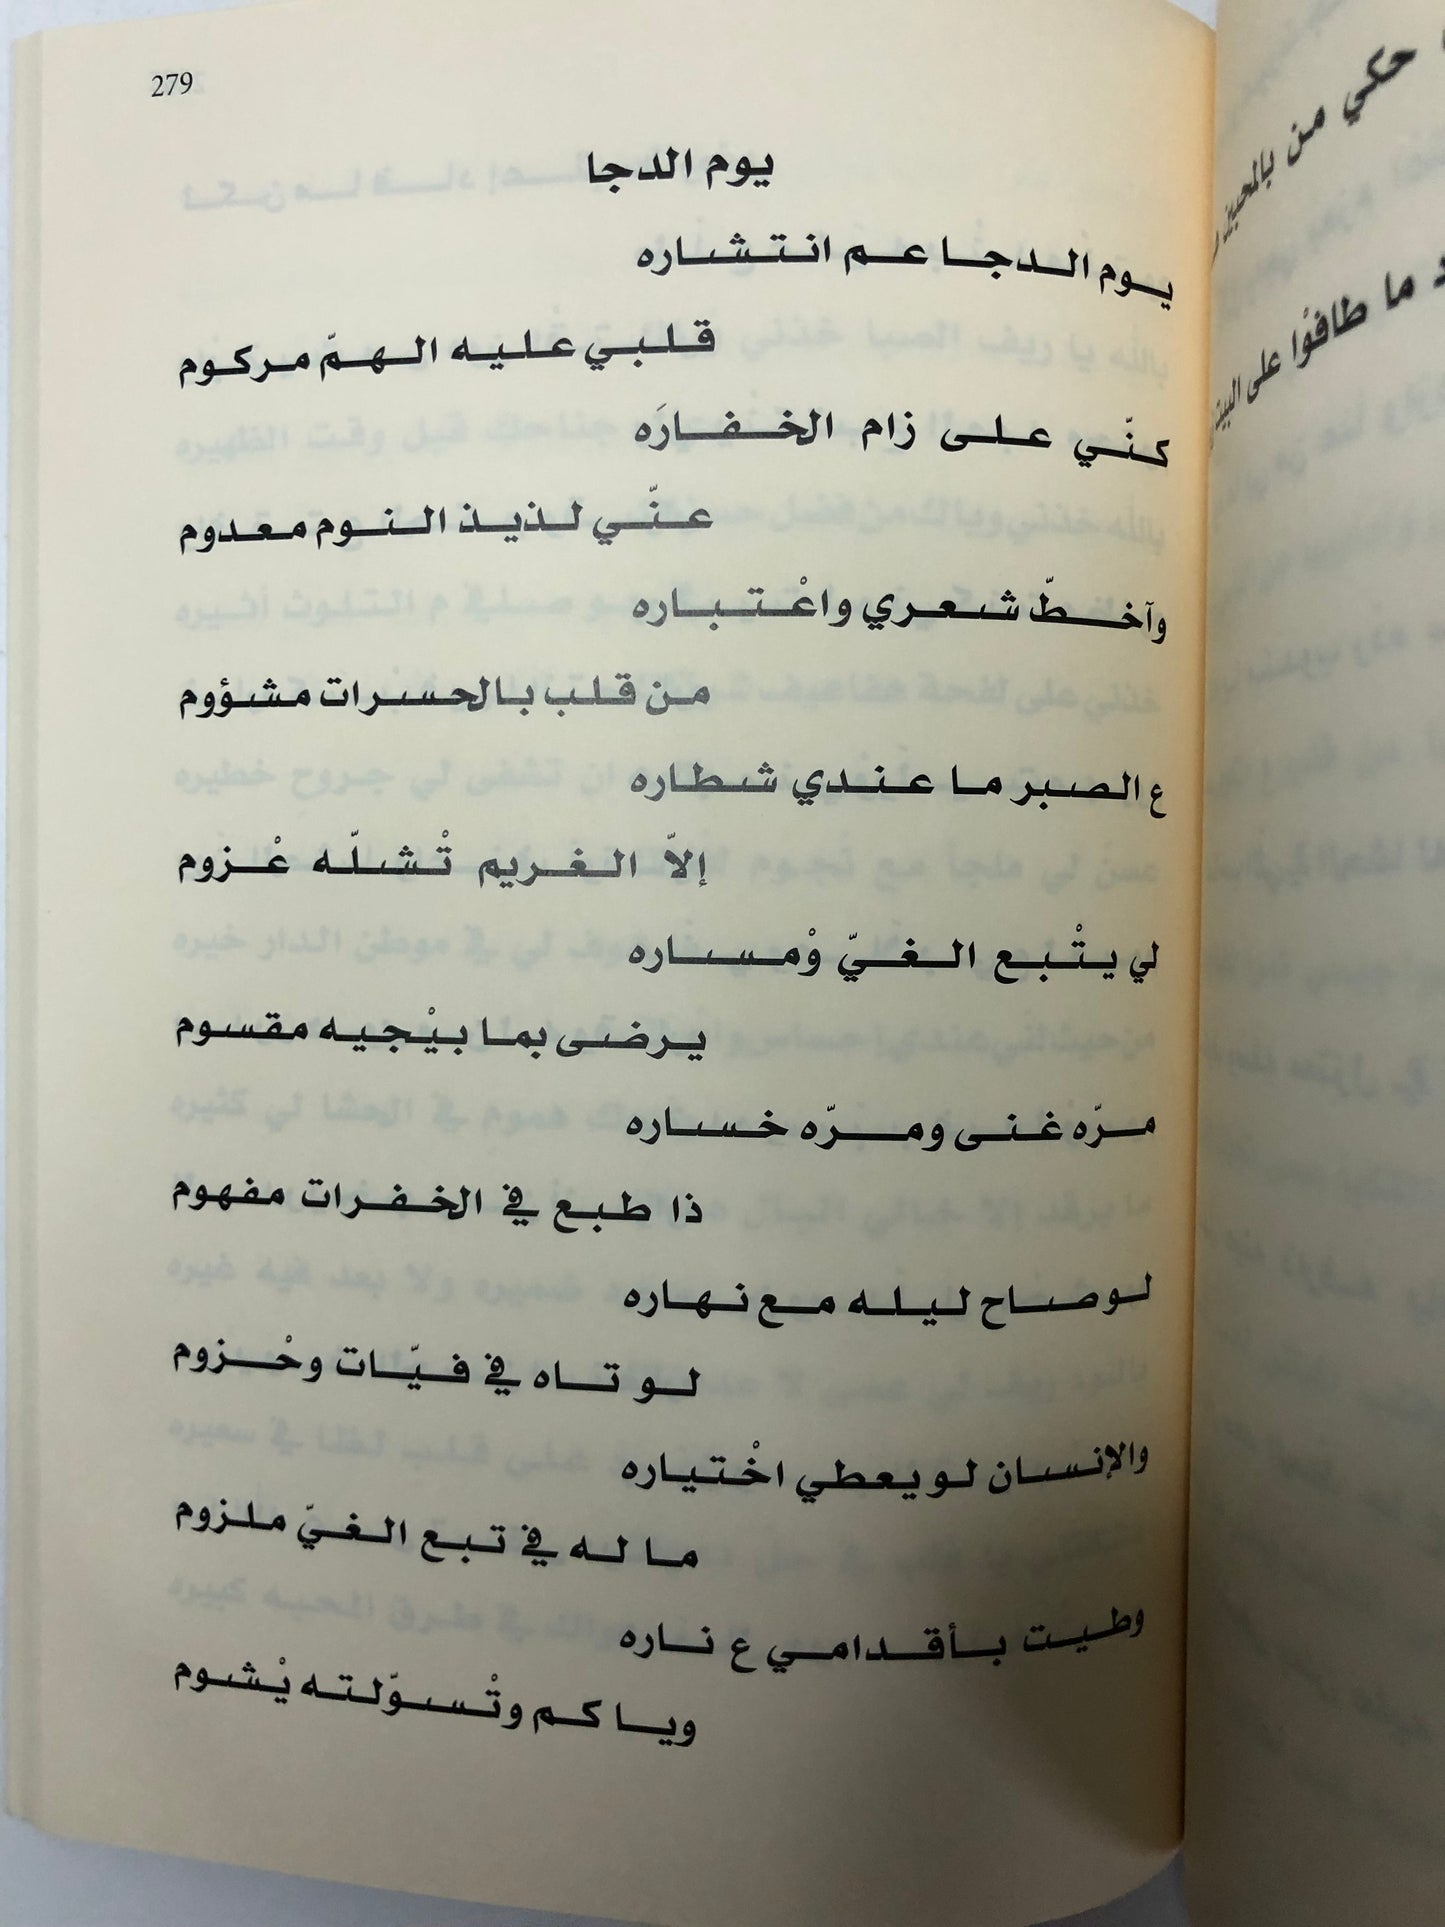 279
يوم الدجا
يوم الدجا عم انتشاره
قلبي عليه الهمّ مركوم
كنّي على زام الخفارَه
عنّي لذيذ النوم معدوم
وآخطّ شعري واعْتباره
من قلب بالحسرات مشؤوم
ع الصبر ما عندي شطاره
إلاّ الغريم تْشلّه عْزوم
لي يتْبع الغيّ وْمساره
يرضى بما بيْجيه مقسوم
مرّه غنى ومرّه خساره
ذا طبع في الخفرات مفهوم
لو صاح ليله مع نهاره
لو تاه في فيّات وحْزوم
والإنسان لو يعطي اخْتياره
ما له في تبع الغيّ ملزوم
وطيت بأقدامي ع ناره
ويا كم وتْسوّلته يْشوم
حكي من بالمحبين
ما طافوا على البيت